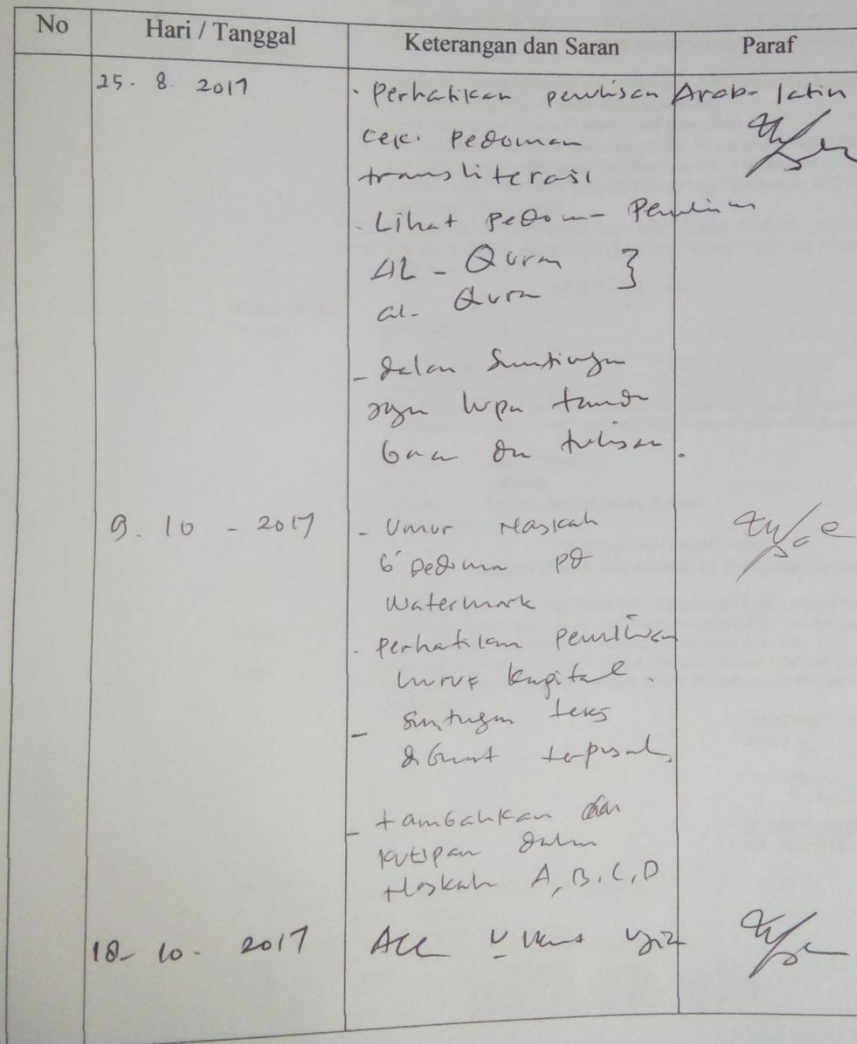 No Hari / Tanggal Keterangan dan Saran Paraf
25. 8. 2017 · Perhatikan penulisan Arab-latin
cek. Pedoman
transliterasi
. Lihat pedoman Penulisan
AL - Quran }
al- Quran
- dalam Suntingan
jgn lupa tanda
baca dn tulisan.
9. 10 - 2017 - Umur Naskah
pedoman pd
Watermark
. Perhatikan penulisan
huruf kapital.
- Suntingan teks
dibuat terpisah
- tambahkan dan
kutipan dalam
Naskah A, B, C, D
18- 10 - 2017 Acc